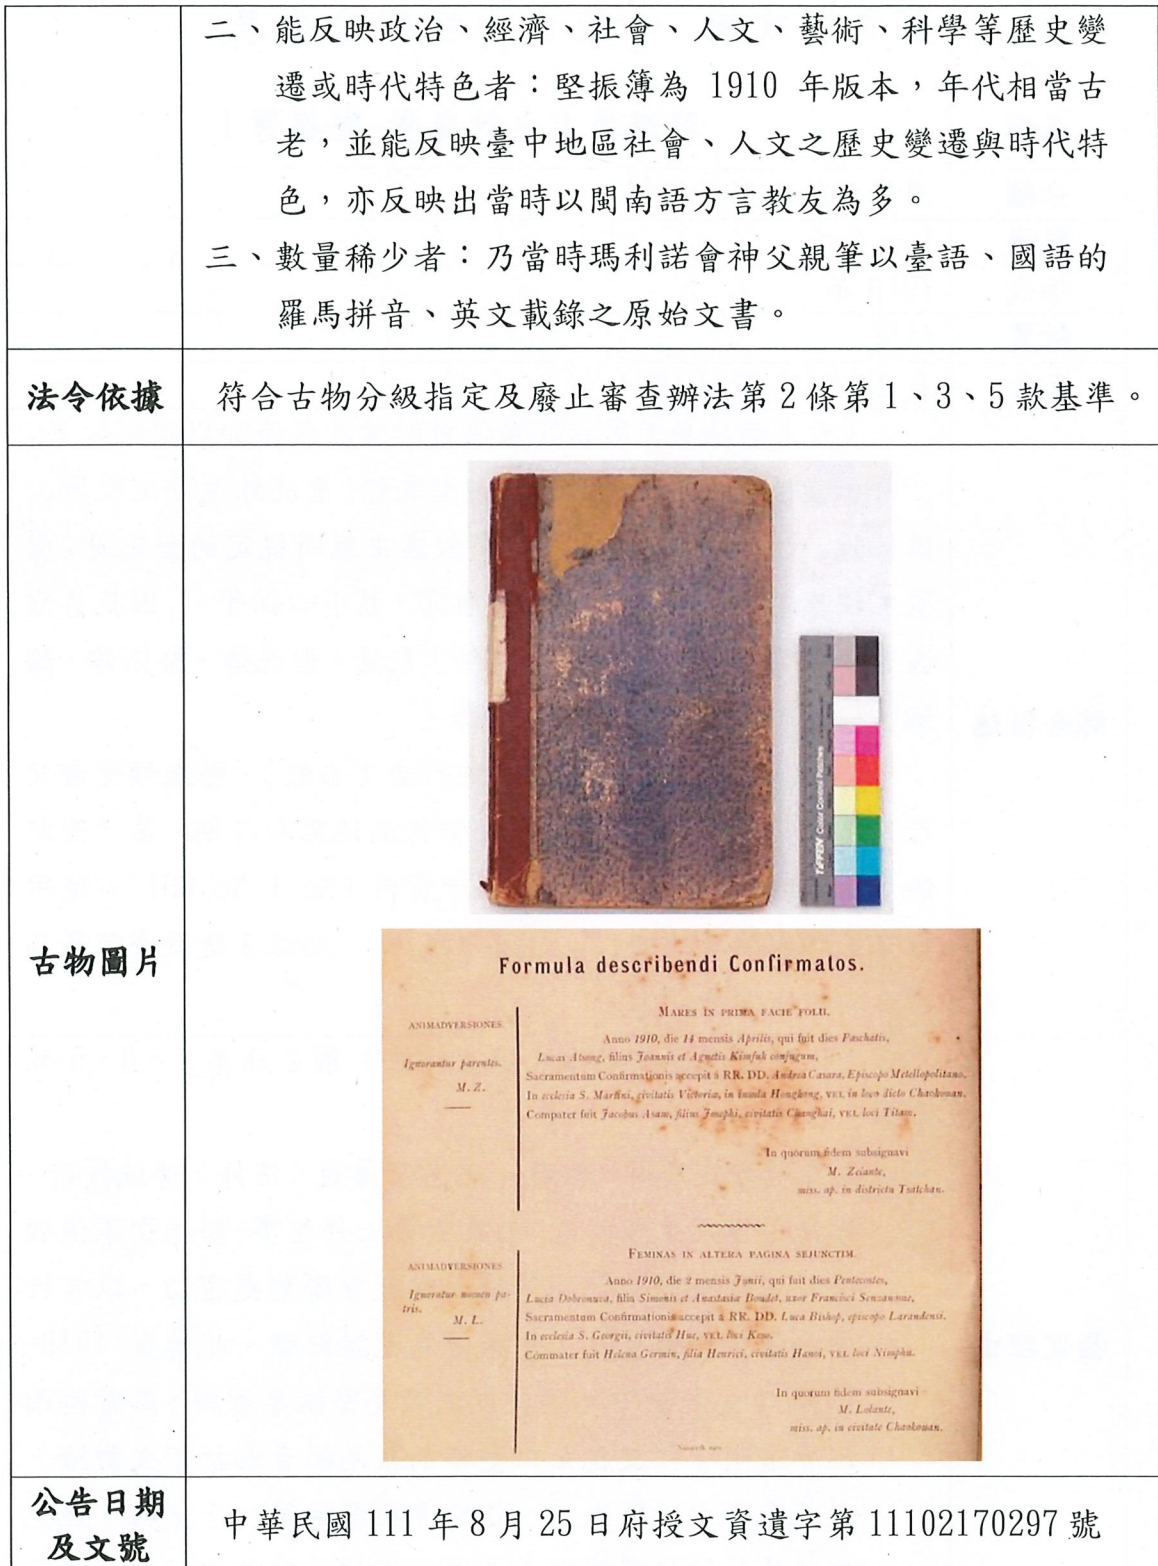 二、能反映政治、經濟、社會、人文、藝術、科學等歷史變
遷或時代特色者：堅振簿為 1910 年版本，年代相當古
老，並能反映臺中地區社會、人文之歷史變遷與時代特
色，亦反映出當時以閩南語方言教友為多。
三、數量稀少者：乃當時瑪利諾會神父親筆以臺語、國語的
羅馬拼音、英文載錄之原始文書。
法令依據
符合古物分級指定及廢止審查辦法第 2 條第 1、3、5 款基準。
古物圖片
TIFFEN Color Control Patches
Formula describendi Confirmatos.
MARES IN PRIMA FACIE FOLII.
ANIMADVERSIONES
Ignorantur parentes.
M. Z.
Anno 1910, die 14 mensis Aprilis, qui fuit dies Paschatis,
Lucas Atsong, filius Joannis et Agnetis Kimfuk conjugum,
Sacramentum Confirmationis accepit à RR. DD. Andrea Casara, Episcopo Metellopolitano.
In ecclesia S. Martini, civitatis Victoriæ, in insula Hongkong, VEL in loco dicto Chaokouan.
Compater fuit Jacobus Asam, filius Josephi, civitatis Changhai, VEL loci Titam.
In quorum fidem subsignavi
M. Zeiante,
miss. ap. in districtu Tsatchan.
FEMINAS IN ALTERA PAGINA SEJUNCTIM.
ANIMADVERSIONES
Ignoratur nomen pa-
tris.
M. L.
Anno 1910, die 2 mensis Junii, qui fuit dies Pentecostes,
Lucia Dobronuva, filia Simonis et Anastasiæ Boudet, uxor Francisci
Sacramentum Confirmationis accepit à RR. DD. Luca Bishop, episcopo Larandensi.
In ecclesia S. Georgii, civitatis Hue, VEL loci Keso.
Commater fuit Helena Germin, filia Henrici, civitatis Hanoi, VEL loci Nimphu.
In quorum fidem subsignavi
M. Lolante,
miss. ap. in civitate Chaokouan.
公告日期
及文號
中華民國 111 年 8 月 25 日府授文資遺字第 11102170297 號